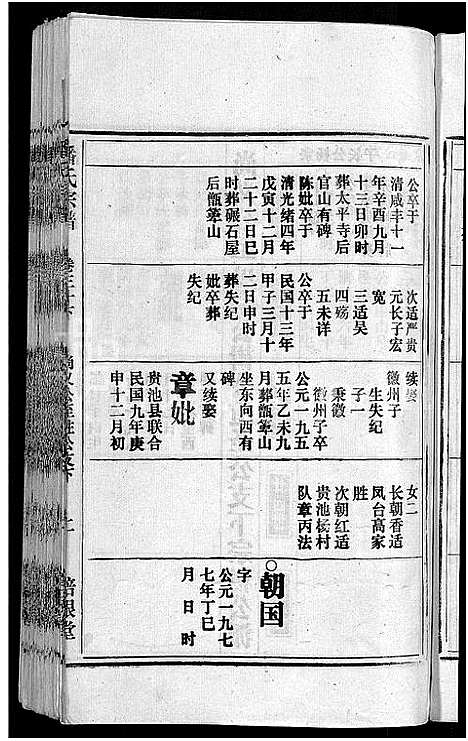 公卒于
清咸丰十一
年辛酉九月
十三日卯时
葬太平寺后
官山有碑
陈妣卒于
清光绪四年
戊寅十二月
二十二日巳
时葬碾石屋
后甑箪山
次适严贵
元长子宏
宽
三适吴
四殇
五未详
公卒于
民国十三年
甲子三月十
二日申时
葬失纪
妣卒葬
失纪
续娶
徽州子
生失纪
子一
秉徽
徽州子卒
公元一九五
五年乙未九
月葬甑箪山
坐东向西有
碑
又续娶
章妣
贵池县联合
民国九年庚
申十二月初
女二
长朝香适
凤台高家
胜
次朝红适
贵池杨村
队章丙法
朝国
字
公元一九七
七年丁巳
月日时
潘氏宗谱